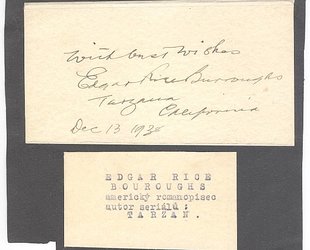 With best wishes
Edgar Rice Burroughs
Tarzana
California
Dec 13 1938
EDGAR RICE
BOUROUGHS
americký romanopisec
autor seriálů :
TARZAN.